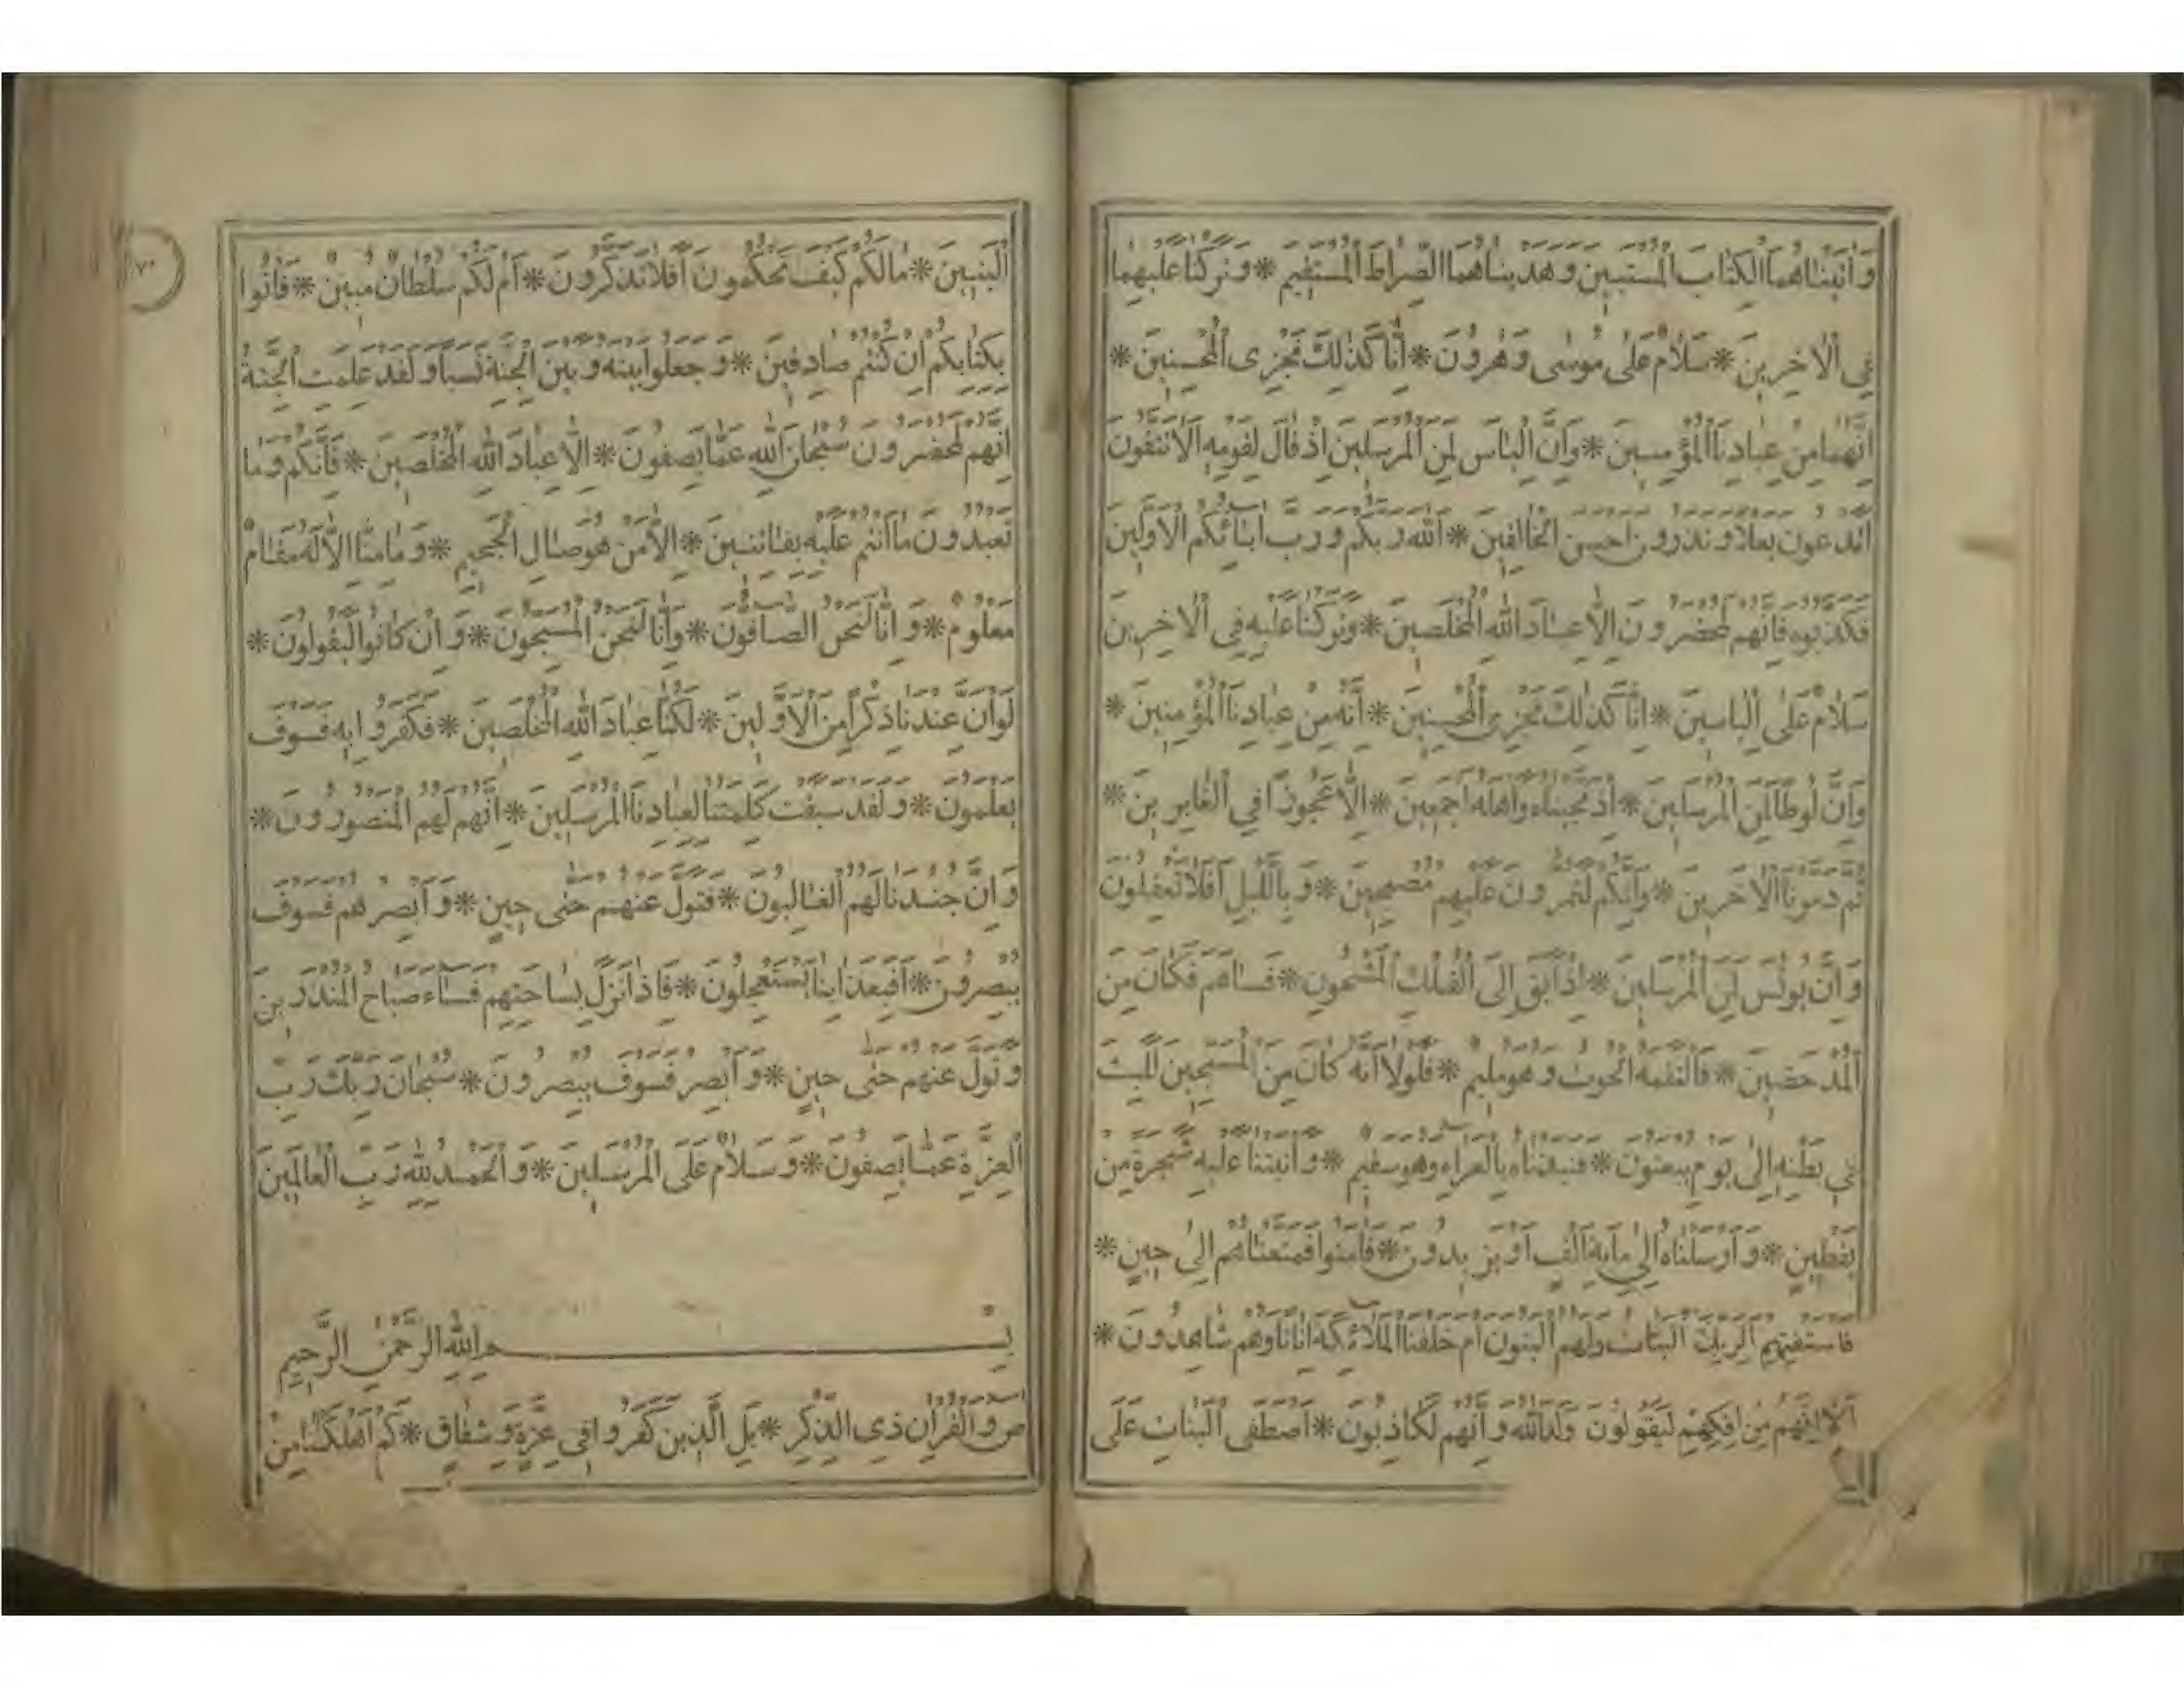 وَاٰتَيْنَاهُمَا الْكِتَابَ الْمُسْتَبِينَ وَهَدَيْنَاهُمَا الصِّرَاطَ الْمُسْتَقِيمَ * وَتَرَكْنَا عَلَيْهِمَا
فِي الْاٰخِرِينَ * سَلَامٌ عَلٰى مُوسٰى وَهٰرُوْنَ * اِنَّا كَذٰلِكَ نَجْزِى الْمُحْسِنِينَ *
اِنَّهُمَا مِنْ عِبَادِنَا الْمُؤْمِنِينَ * وَاِنَّ اِلْيَاسَ لَمِنَ الْمُرْسَلِينَ اِذْ قَالَ لِقَوْمِهِ اَلَا تَتَّقُونَ
اَتَدْعُونَ بَعْلًا وَتَذَرُونَ اَحْسَنَ الْخَالِقِينَ * اَللّٰهَ رَبَّكُمْ وَرَبَّ اٰبَائِكُمُ الْاَوَّلِينَ
فَكَذَّبُوهُ فَاِنَّهُمْ لَمُحْضَرُونَ اِلَّا عِبَادَ اللّٰهِ الْمُخْلَصِينَ * وَتَرَكْنَا عَلَيْهِ فِي الْاٰخِرِينَ
سَلَامٌ عَلٰى اِلْيَاسِينَ * اِنَّا كَذٰلِكَ نَجْزِى الْمُحْسِنِينَ * اِنَّهُ مِنْ عِبَادِنَا الْمُؤْمِنِينَ *
وَاِنَّ لُوطًا لَمِنَ الْمُرْسَلِينَ * اِذْ نَجَّيْنَاهُ وَاَهْلَهُ اَجْمَعِينَ * اِلَّا عَجُوزًا فِي الْغَابِرِينَ *
ثُمَّ دَمَّرْنَا الْاٰخَرِينَ * وَاِنَّكُمْ لَتَمُرُّونَ عَلَيْهِمْ مُصْبِحِينَ * وَبِاللَّيْلِ اَفَلَا تَعْقِلُونَ
وَاِنَّ يُونُسَ لَمِنَ الْمُرْسَلِينَ * اِذْ اَبَقَ اِلَى الْفُلْكِ الْمَشْحُونِ * فَسَاهَمَ فَكَانَ مِنَ
الْمُدْحَضِينَ * فَالْتَقَمَهُ الْحُوتُ وَهُوَ مُلِيمٌ * فَلَوْلَا اَنَّهُ كَانَ مِنَ الْمُسَبِّحِينَ لَلَبِثَ
فِي بَطْنِهِ اِلٰى يَوْمِ يُبْعَثُونَ * فَنَبَذْنَاهُ بِالْعَرَاءِ وَهُوَ سَقِيمٌ * وَاَنْبَتْنَا عَلَيْهِ شَجَرَةً مِنْ
يَقْطِينٍ * وَاَرْسَلْنَاهُ اِلٰى مِايَةِ اَلْفٍ اَوْ يَزِيدُونَ * فَاٰمَنُوا فَمَتَّعْنَاهُمْ اِلٰى حِينٍ *
فَاسْتَفْتِهِمْ اَلِرَبِّكَ الْبَنَاتُ وَلَهُمُ الْبَنُونَ اَمْ خَلَقْنَا الْمَلَائِكَةَ اِنَاثًا وَهُمْ شَاهِدُونَ *
اَلَا اِنَّهُمْ مِنْ اِفْكِهِمْ لَيَقُولُونَ وَلَدَ اللّٰهُ وَاِنَّهُمْ لَكَاذِبُونَ * اَصْطَفَى الْبَنَاتِ عَلَى
٧٠
الْبَنِينَ * مَالَكُمْ كَيْفَ تَحْكُمُونَ اَفَلَا تَذَكَّرُونَ * اَمْ لَكُمْ سُلْطَانٌ مُبِينٌ * فَاْتُوا
بِكِتَابِكُمْ اِنْ كُنْتُمْ صَادِقِينَ * وَجَعَلُوا بَيْنَهُ وَبَيْنَ الْجِنَّةِ نَسَبًا وَلَقَدْ عَلِمَتِ الْجِنَّةُ
اِنَّهُمْ لَمُحْضَرُونَ سُبْحَانَ اللّٰهِ عَمَّا يَصِفُونَ * اِلَّا عِبَادَ اللّٰهِ الْمُخْلَصِينَ * فَاِنَّكُمْ وَمَا
تَعْبُدُونَ مَا اَنْتُمْ عَلَيْهِ بِفَاتِنِينَ * اِلَّا مَنْ هُوَ صَالِ الْجَحِيمِ * وَمَا مِنَّا اِلَّا لَهُ مَقَامٌ
مَعْلُومٌ * وَاِنَّا لَنَحْنُ الصَّافُّونَ * وَاِنَّا لَنَحْنُ الْمُسَبِّحُونَ * وَاِنْ كَانُوا لَيَقُولُونَ *
لَوْ اَنَّ عِنْدَنَا ذِكْرًا مِنَ الْاَوَّلِينَ * لَكُنَّا عِبَادَ اللّٰهِ الْمُخْلَصِينَ * فَكَفَرُوا بِهِ فَسَوْفَ
يَعْلَمُونَ * وَلَقَدْ سَبَقَتْ كَلِمَتُنَا لِعِبَادِنَا الْمُرْسَلِينَ * اِنَّهُمْ لَهُمُ الْمَنْصُورُونَ *
وَاِنَّ جُنْدَنَا لَهُمُ الْغَالِبُونَ * فَتَوَلَّ عَنْهُمْ حَتّٰى حِينٍ * وَاَبْصِرْهُمْ فَسَوْفَ
يُبْصِرُونَ * اَفَبِعَذَابِنَا يَسْتَعْجِلُونَ * فَاِذَا نَزَلَ بِسَاحَتِهِمْ فَسَاءَ صَبَاحُ الْمُنْذَرِينَ
وَتَوَلَّ عَنْهُمْ حَتّٰى حِينٍ * وَاَبْصِرْ فَسَوْفَ يُبْصِرُونَ * سُبْحَانَ رَبِّكَ رَبِّ
الْعِزَّةِ عَمَّا يَصِفُونَ * وَسَلَامٌ عَلَى الْمُرْسَلِينَ * وَالْحَمْدُ لِلّٰهِ رَبِّ الْعَالَمِينَ
بِسْمِ اللّٰهِ الرَّحْمٰنِ الرَّحِيمِ
صٓ وَالْقُرْاٰنِ ذِى الذِّكْرِ * بَلِ الَّذِينَ كَفَرُوا فِي عِزَّةٍ وَشِقَاقٍ * كَمْ اَهْلَكْنَا مِنْ